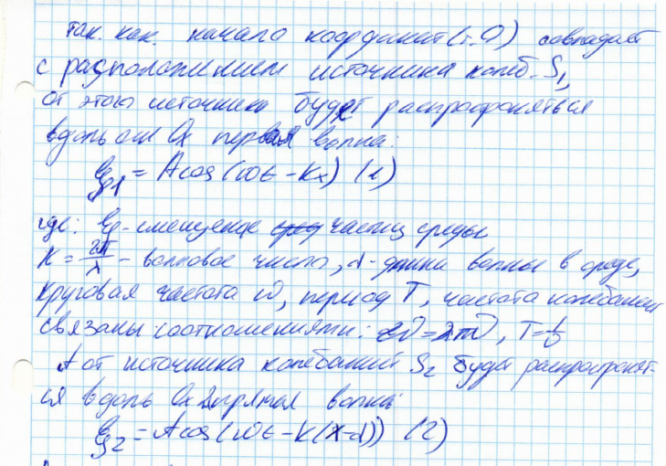 так. как. начало координат (т. О) совпадает
с расположением источника колеб. S₁,
от этого источника будет распространяться
вдоль оси Ox первая волна:
ξ₁ = A cos(ωt - kx) (1)
где: ξ - смещение частиц среды
K = 2π/λ - волновое число, λ - длина волны в среде,
круговая частота ω, период T, частота колебаний
связаны соотношениями: ω = 2πν, T = 1/ν
А от источника колебаний S₂ будет распространят-
ся вдоль Ox волна:
ξ₂ = A cos(ωt - k(x-d)) (2)